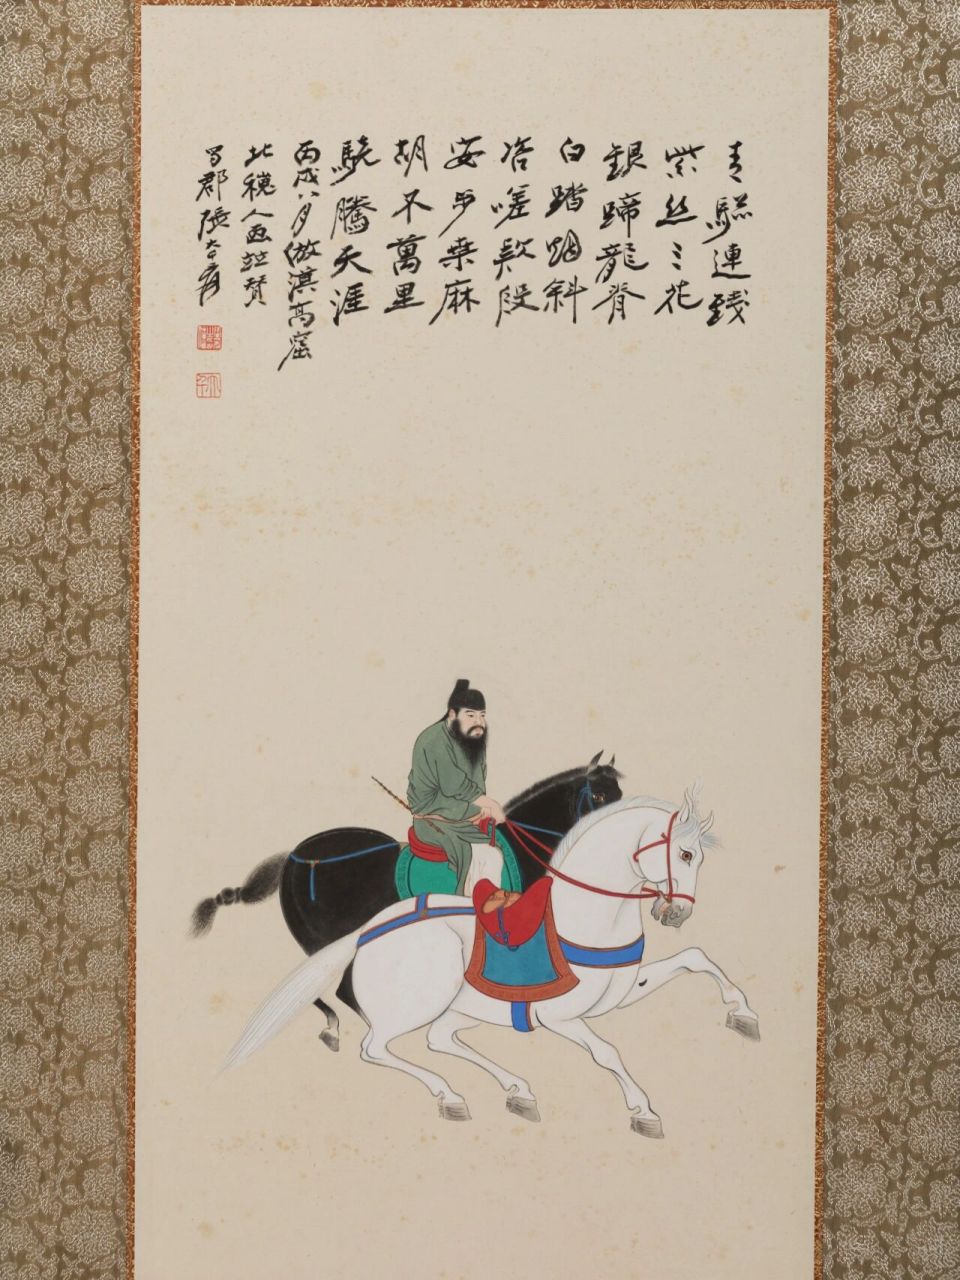 青驄連錢
紫絲三花
銀蹄龍脊
白踏烟斜
咨嗟款段
安步桑麻
胡不萬里
驍騰天涯
丙戌八月倣漠高窟
北魏人画竝贊
蜀郡張大千爰
大千